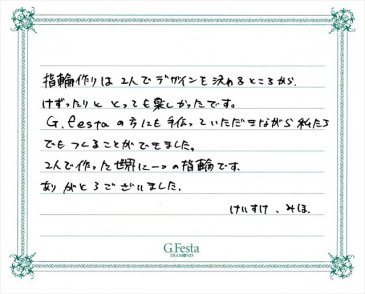 指輪作りは2人でデザインを決めるところから
けずったりと とっても楽しかったです。
G.festaの方にも手伝っていただきながら私たち
でもつくることができました。
2人で作った世界に一つの指輪です。
ありがとうございました。
けいすけ、みほ.
G.Festa
DIAMOND